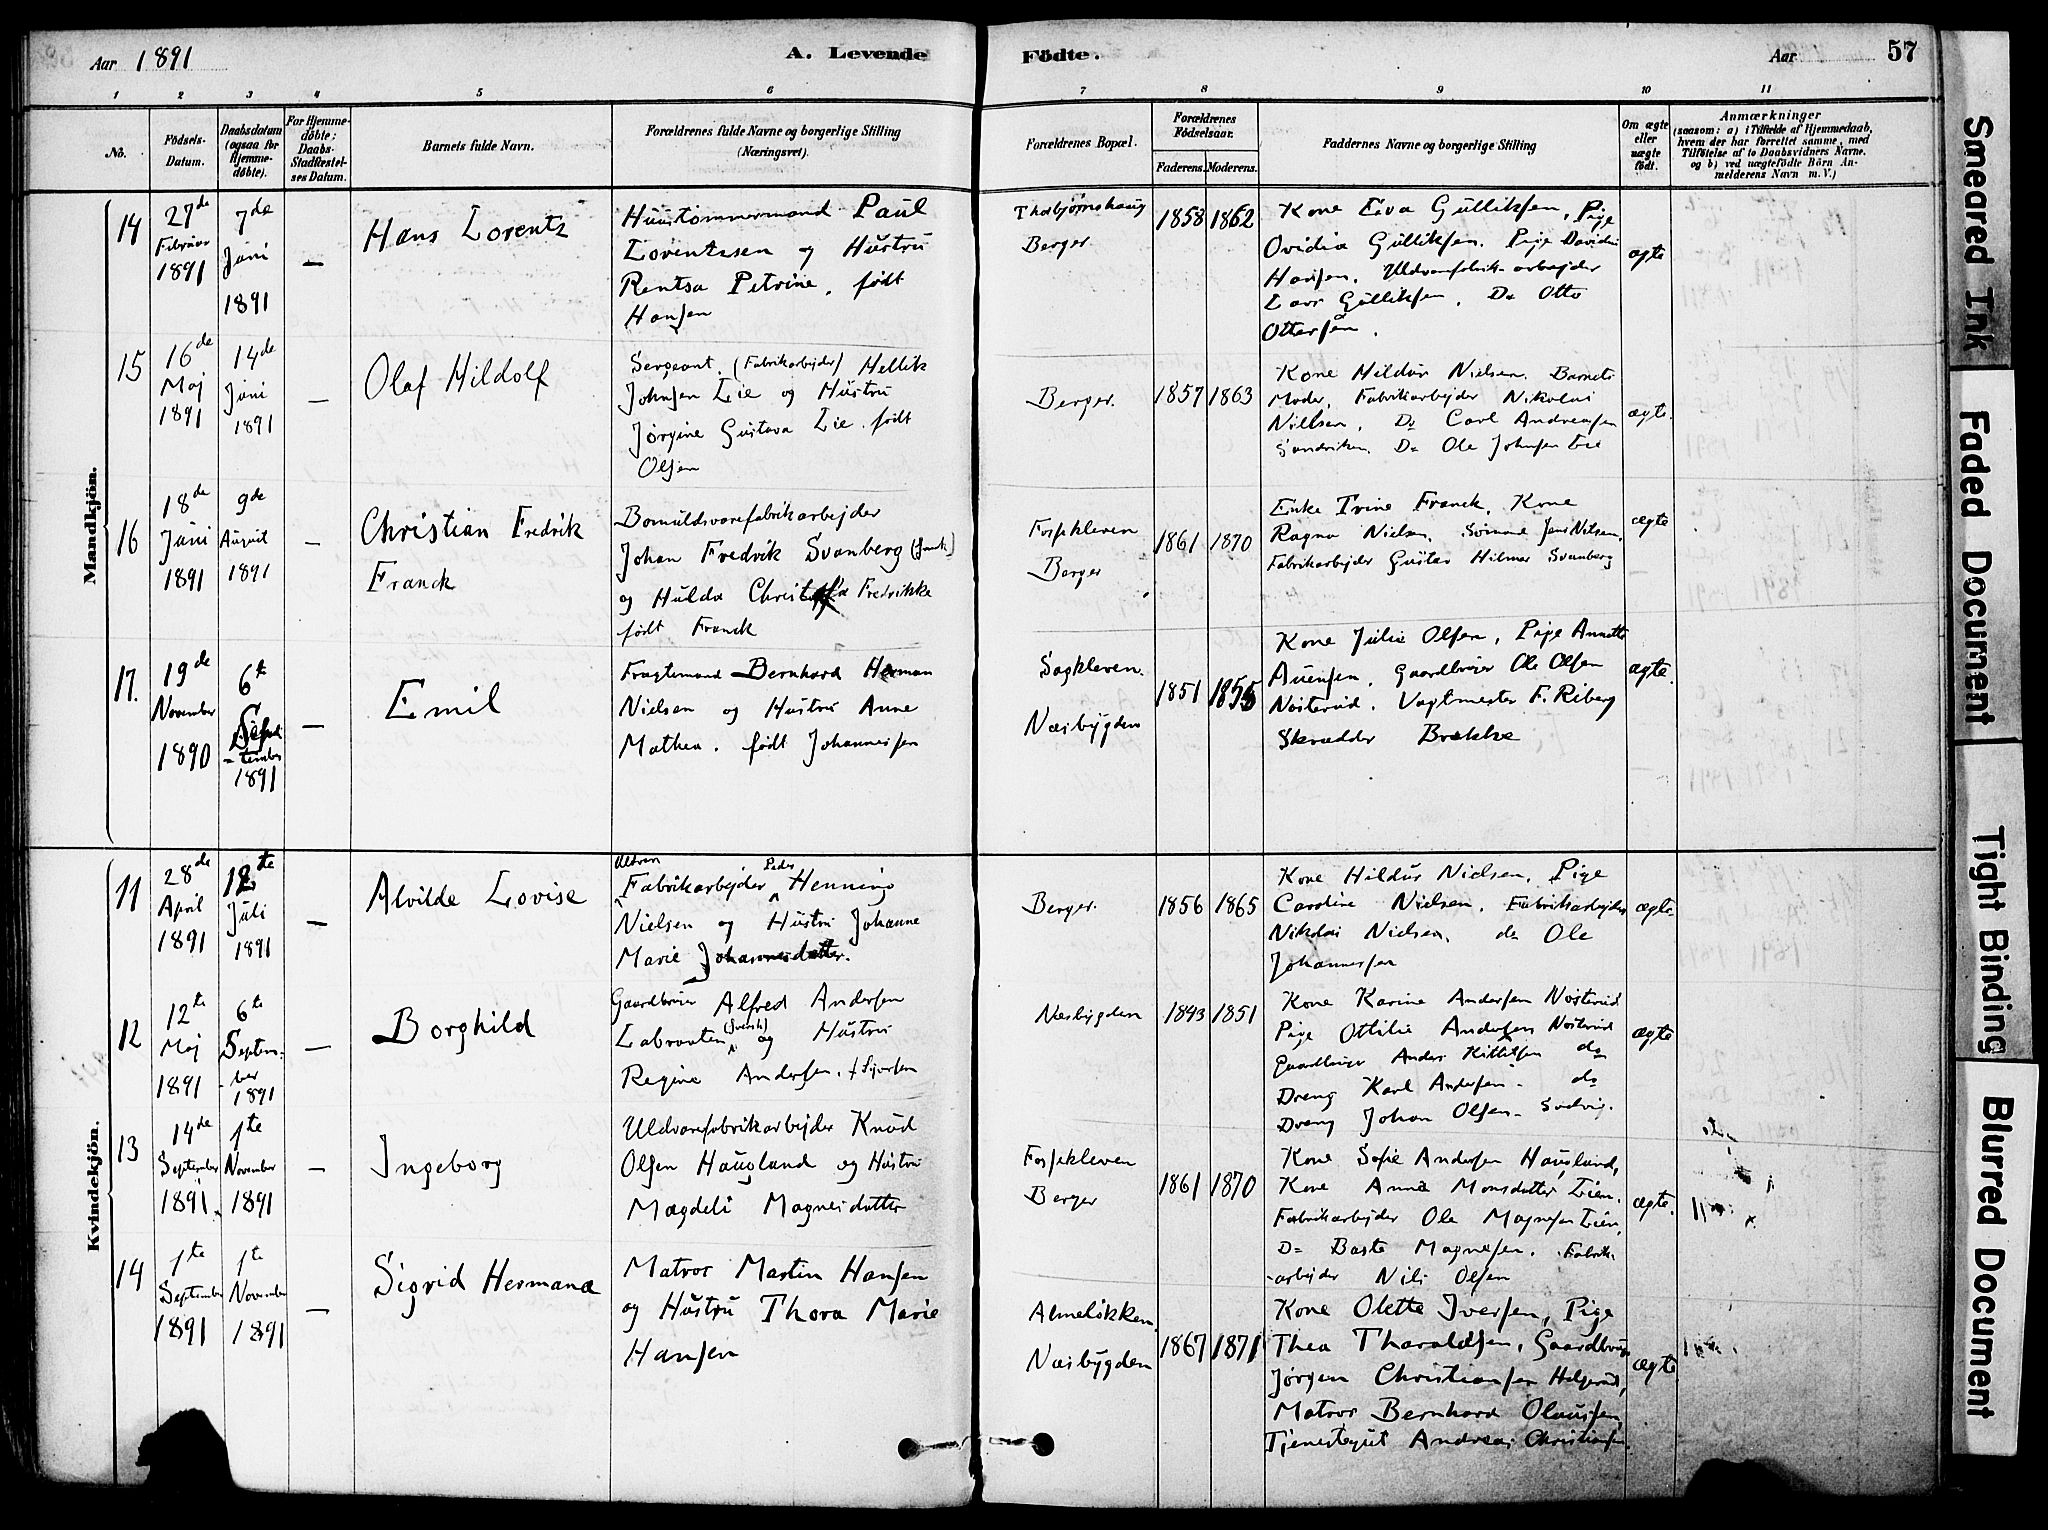 Aar 1891
A. Levende
Födte.
Aar
57
1
2
3
4
5
6
7
8
9
10
11
No.
Födsels-
Datum.
Daabsdatum
(ogsaa for
Hjemme-
döbte).
For Hjemme-
döbte:
Daabs-
Stadfæstel-
ses Datum.
Barnets fulde Navn.
Forældrenes fulde Navne og borgerlige Stilling
(Næringsvei).
Forældrenes Bopæl.
Forældrenes
Födselsaar.
Faderens.
Moderens.
Faddernes Navne og borgerlige Stilling
Om ægte
eller
uægte
födt.
Anmærkninger
(saasom: a) i Tilfælde af Hjemmedaab,
hvem der har forrettet samme, med
Tilföielse af to Daabsvidners Navne,
og b) ved uægtefödte Börn An-
melderens Navn m. V.)
Mandkjön.
14
27de
Februar
1891
7de
Juni
1891
—
Hans Lorentz
Huustømmermand Paul
Lorentzsen og Hustru
Rentsa Petrine, født
Hansen
Thorbjørnshaug
Berger.
1858
1862
Kone Eva Gulliksen, Pige
Ovidia Gulliksen. Pige Davida
Hansen. Uldvarefabrik-arbejder
Lars Gulliksen. Do Otto
Ottersen.
ægte
15
16de
Maj
1891
14de
Juni
1891
—
Olaf Hildolf
Sergeant. (Fabrikarbejder) Hellik
Johnsen Lie og Hustru
Jørgine Gustava Lie. født
Olsen
Berger.
1857
1863
Kone Hildur Nielsen. Barnets
Moder, Fabrikarbejder Nikolai
Nielsen. Do Carl Andreasen
Sandviken. Do Ole Johnsen Lie
ægte.
16
18de
Juni
1891
9de
August
1891
—
Christian Fredrik
Franck
Bomuldsvarefabrikarbejder
Johan Fredrik Svanberg (svensk)
og Hulda Fredrikke
født Franck
Fossekleven
Berger
1861
1870
Enke Trine Franck, Kone
Ragna Nielsen. Sømand Jens Nilsen.
Fabrikarbejder Gustav Hilmer Svanberg
ægte
17.
19de
November
1890
6te
Septem
-tember
1891
—
Emil
Fragtemand Bernhard Herman
Nielsen og Hustru Anne
Mathea. født Johannessen
Sagkleven.
Næsbygden
1851
1855
Kone Julie Olsen, Pige Annette
Auensen, Gaardbruger Ole Olsen
Nøsterud. Vagtmester F. Riberg
Skrædder Brekke
ægte.
Kvindekjön.
11
28de
April
1891
12te
Juli
1891
—
Alvilde Lovise
Uldvare Peder
Fabrikarbejder Henning
Nielsen og Hustru Johanne
Marie Johannesdatter.
Berger.
1856
1865
Kone Hildur Nielsen, Pige
Caroline Nielsen. Fabrikarbejder
Nikolai Nielsen. do Ole
Johannessen
ægte
12
12te
Maj
1891
6te
Septem-
-ber
1891
—
Borghild
Gaardbruger Alfred Andersen
Labraaten (svensk) og Hustru
Regine Andersen. f. Sjursen
Næsbygden
1843
1851
Kone Karine Andersen Nøsterud
Pige Ottilie Andersen Nøsterud
Gaardbruger Anders Kittilsen do
Dreng Karl Andersen. do
Dreng Johan Olsen - Sudvig.
ægte
13
14de
September
1891.
1te
November
1891
—
Ingeborg
Uldvarefabrikarbejder Knud
Olsen Haugland og Hustru
Magdeli Magnesdatter
Fossekleven
Berger
1861
1870
Kone Sofie Andersen Haugland,
Kone Anna Monsdatter Lien.
Fabrikarbejder Ole Magnesen Lien,
Do Baste Magnesen. Fabrik-
-arbejder Nils Olsen
ægte.
14
1te
September
1891
1te
November
1891
—
Sigrid Hermana
Matros Martin Hansen
og Hustru Thora Marie
Hansen
Almeløkken.
Næsbygden
1867
1871
Kone Olette Iversen, Pige
Thea Tharaldsen, Gaardbruger
Jørgen Christiansen Helgerud,
Matros Bernhard Olaussen,
Tjenestegut Andreas Christiansen.
ægte
Smeared Ink
Faded Document
Tight Binding
Blurred Document